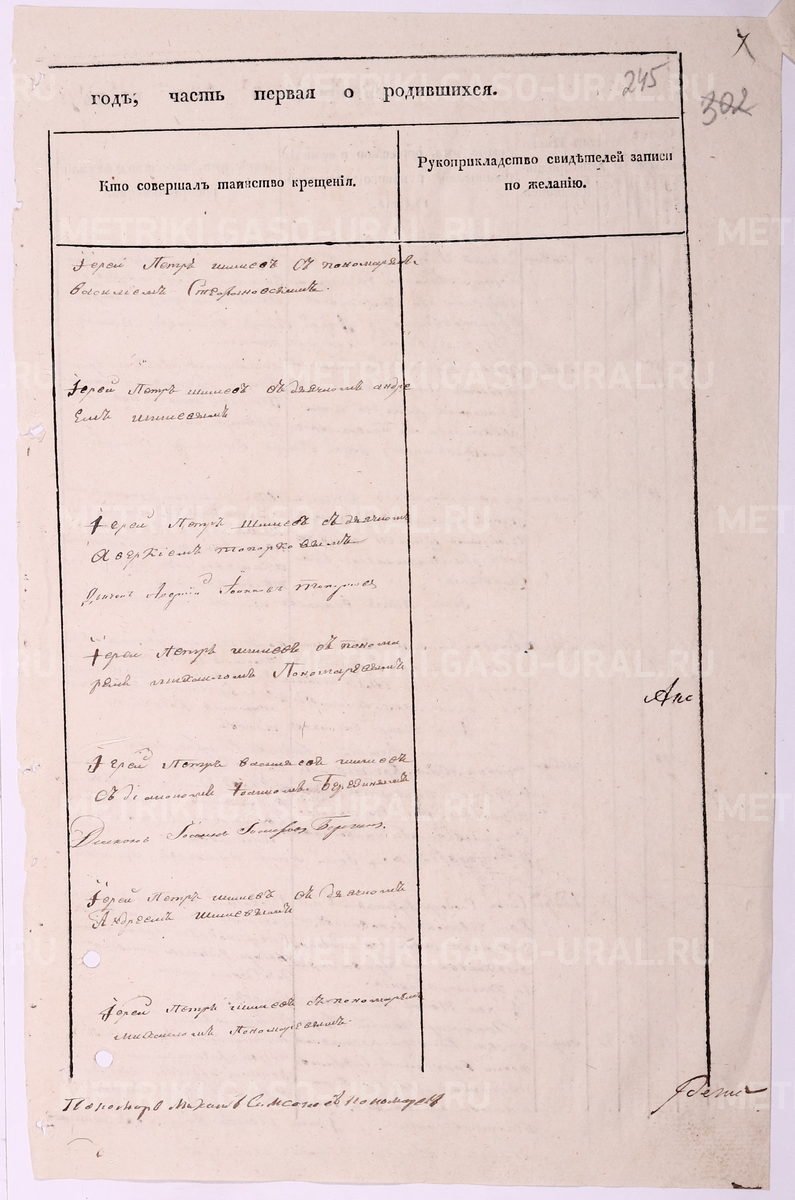 7
245
302
годъ, часть первая о родившихся.
Кто совершалъ таинство крещенія.
Рукоприкладство свидѣтелей записи
по желанію.
Іерей Петръ Шишевъ съ пономаремъ
Василіемъ Стефановскимъ.
Іерей Петръ Шишевъ съ дьячкомъ Андре
емъ Шишевымъ
Іерей Петръ Шишевъ съ дьячкомъ
Аверкіемъ Топорковымъ
Дьячекъ
Іерей Петръ Шишевъ съ понома
ремъ Михаиломъ Пономаревымъ
Іерей Петръ Васильевъ Шишевъ
съ діакономъ Іоанномъ
Діаконъ Іоаннъ
Іерей Петръ Шишевъ съ дьячкомъ
Андреемъ Шишевымъ
Іерей Петръ Шишевъ съ пономаремъ
Михаиломъ Пономаревымъ.
Пономарь Михаилъ Самсоновъ Пономаревъ
METRIKI.GASO-URAL.RU